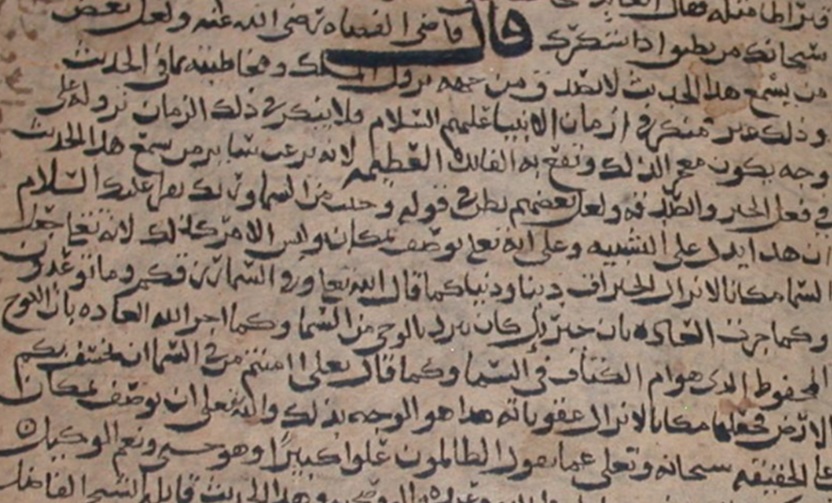 فتراطا مثله فقال العابد
قال قاضي القضاه رضي الله عنه ولعل بعض
من يسمع هذا الحديث لا يصدق من جهه نزول الملك ومخاطبته بما في الحديث
وذلك غير منكر في ازمان الانبيا عليهم السلام ولا ينكر في ذلك الزمان نزوله على
وجه يكون معجزا لذلك وتقع به الفايده العظيمه لانه يرغب بسا ير من سمع هذا الحديث
في فعل الخير والصدقه ولعل بعضهم يظن في قوله من السما وذلك نقل عليه السلام
ان هذا يدل على التشبيه وعلى انه تعلى يوصف بمكان وليس الامر كذلك لانه تعلى جعل
السما مكانا لانزال الخيرات دينا ودنيا كما قال الله تعا وفي السما رزقكم وما توعدون
وكما جرت العاده بان جبريل كان ينزل بالوحي من السما وكما اجرا الله العاده بان اللوح
المحفوظ الذي هو ام الكتاب في السما وكما قال تعلى اامنتم من في السما ان يخسف بكم
الارض فجعلها مكانا لانزال عقوباته هذا هو الوجه بذلك والله تعلى ان يوصف بمكان
على الحقيقه سبحانه وتعلى عما يقول الظالمون علوا كبيرا وهو حسبي ونعم الوكيل
وهذا الحديث الشيخ الفاضل